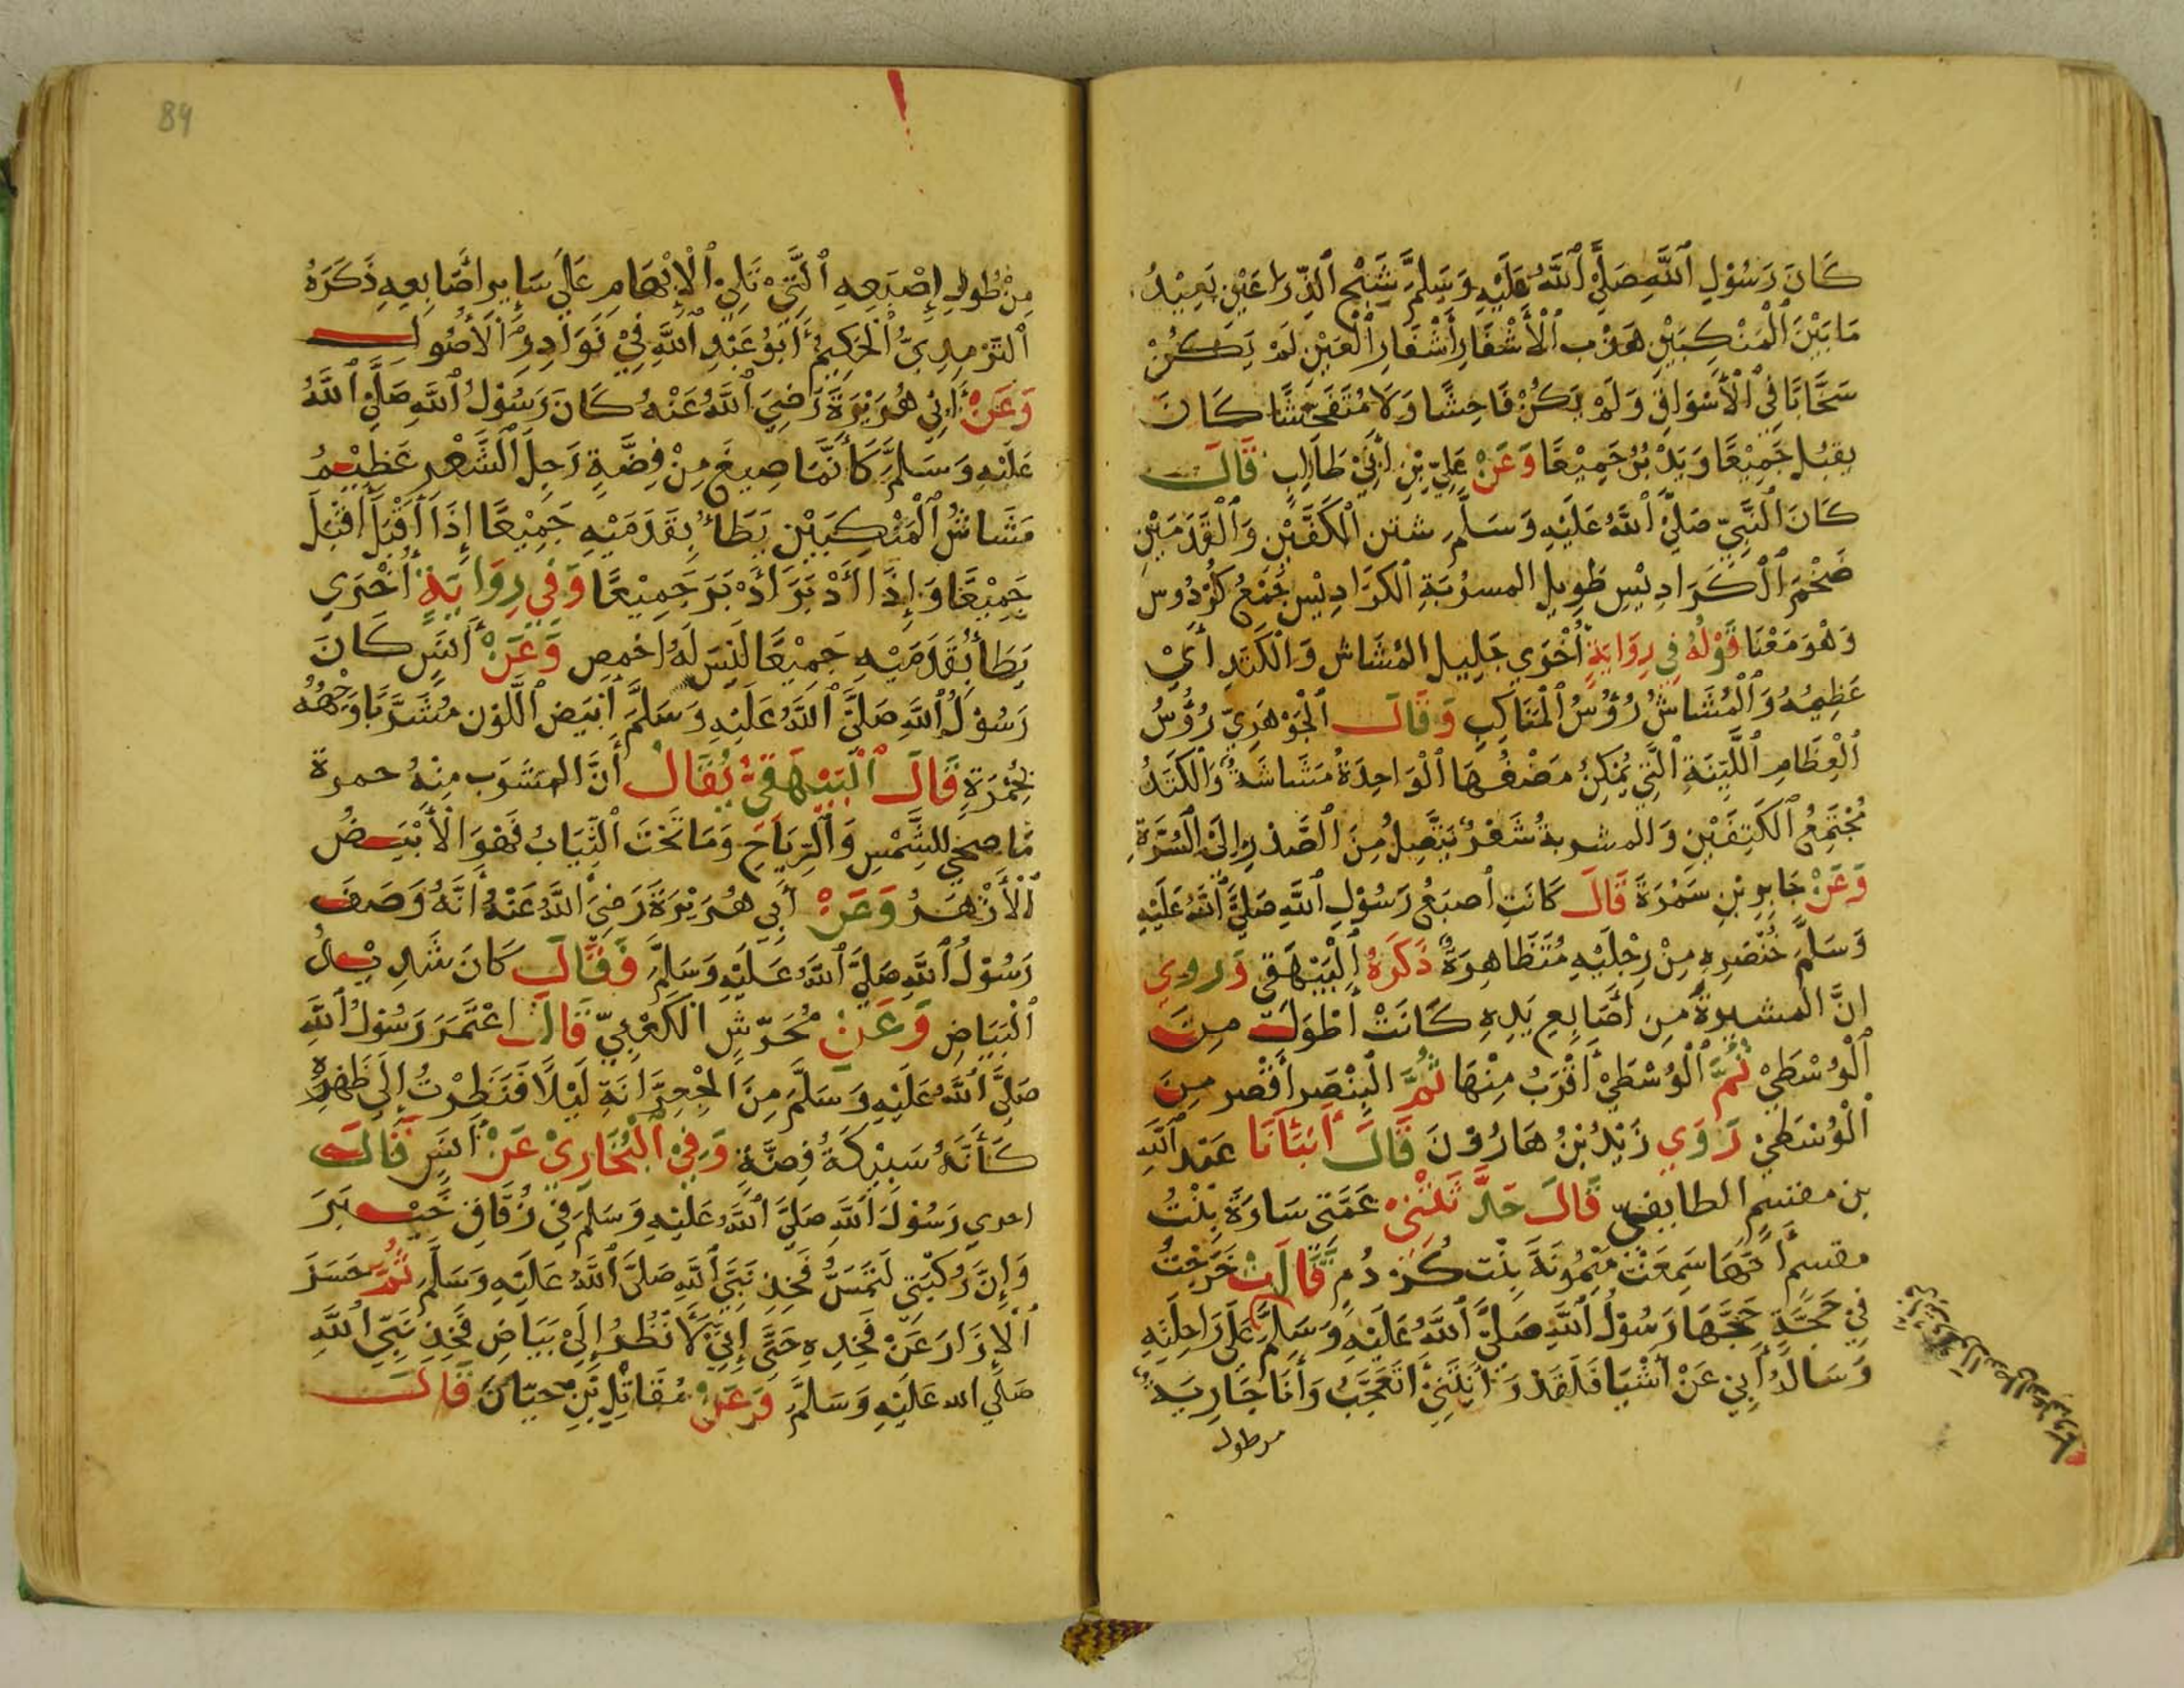 كَانَ رَسُوْلِ ٱللَّهِ صَلَّيْ ٱللَّهُ عَلَيْهِ وَسَلَّمَ شَبْحَ ٱلذِّرَاعَيْنِ بَعِيْدُ
مَا بَيْنَ ٱلْمَنْكِبَيْنِ هَدْبِ ٱلْأَشْفَارِ أَشْفَارِ ٱلْعَيْنِ لَمْ يَكُنْ
سَخَّابًا فِي ٱلْأَسْوَاقِ وَلَمْ يَكُنْ فَاحِشًا وَلَا مُتَفَحِّشًا كَانَ
يقبُل جَمِيْعًا وَيَدْبُرُ جَمِيْعًا وَعَنْ عَلِيِّ بْنِ أَبِيْ طَالِبٍ قَالَ
كَانَ ٱلنَّبِيّ صَلَّيْ ٱللَّهُ عَلَيْهِ وَسَلَّمَ شثن ٱلْكَفَّيْنِ وَٱلْقَدَمَيْنِ
ضَخْمَ ٱلْكَرَادِيْسِ طَوِيل المسرُبَةِ ٱلكَرَادِيْسِ جَمْعُ كُرْدُوسٍ
وَهْوَ مَعْنَا قَوْلُهُ فِي رِوَايَةٍ أُخْرَي جَلِيلِ الْمُشَاشِ وَالْكَتَدِ أَيْ
عَظِيمُهُ وَٱلْمُشَاشُ رُؤُسُ ٱلْمَنَاكِبِ وَقَالَ ٱلْجَوْهَرِيّ رُؤُسُ
ٱلْعِظَامِ ٱللَّيِّنَةِ ٱلَّتِي يُمْكِنُ مَضْغُهَا ٱلْوَاحِدَةُ مُشَاشَةٌ وَٱلْكَتَدُ
مُجْتَمِعُ ٱلْكَتِفَيْنِ وَالمسربةُ شَعْرٌ يَتَّصِلُ مِنَ ٱلصَّدْرِ إِلَيْ ٱلسُّرَّةِ
وَعَنْ جَابِرِ بْنِ سَمُرَةَ قَالَ كَانَتِ أُصبَعُ رَسُوْلِ ٱللَّهِ صَلَّيْ ٱللَّهُ عَلَيْهِ
وَسَلَّمَ خُنْصَرِهِ مِنْ رِجْلَيْهِ مُتَظَاهِرَةٌ ذَكَرَهُ ٱلْبَيْهَقِي وَرُوِي
انَّ المشيرةُ مِنَ أَصَابِعِ يَدِهِ كَانَتْ أَطْوَلَ مِنَ
ٱلْوُسْطَيْ ثُمَّ ٱلْوُسْطَيْ أَقْرَبُ مِنْهَا ثُمَّ ٱلْبِنْصَر أَقْصَر مِنَ
ٱلْوُسْطَيْ رَوَي زَيْدُ بْنُ هَارُوْنَ قَالَ أَنْبَأَنَا عَبْدِ ٱللَّهِ
بن مقسم الطايفيّ قَالَ حَدَّثَتْنِيْ عَمَّتِي سَارَةَ بِنْتُ
مقسم أَنَّهَا سَمِعَتْ مَيْمُونَةَ بِنْت كُرْدُمٍ قَالَتْ خَرَجْتُ
فِي حَجَّةٍ حَجَّهَا رَسُوْلُ ٱللَّهِ صَلَّيْ ٱللَّهُ عَلَيْهِ وَسَلَّمَ عَلَى رَاحِلَتِهِ
وَسَالَهُ أَبِي عَنْ أَشْيَا فَلَقَدْ رَأَيْتُنِيْ أَتَعَجَّبُ وَأَنَا جَارِيَةٌ
من طول
84
مِنْ طُولِ إِصْبَعِهِ ٱلَّتِيْ تَلِيْ ٱلْإِبْهَامِ عَلَي سَايِرِ أَصَابِعِهِ ذَكَرَهُ
ٱلتِّرْمِذِيُّ ٱلْحَكِيْمُ أَبُوْ عَبْدِ ٱللَّهِ فِيْ نَوَادِرِ ٱلْأُصُول
وَعَنْ أَبِي هُرَيْرَةَ رَضِيَ ٱللَّهُ عَنْهُ كَانَ رَسُوْلُ ٱللَّهِ صَلَّيْ ٱللَّهُ
عَلَيْهِ وَسَلَّمَ كَأَنَّمَا صِيغَ مِنْ فِضَّةٍ رَجِلَ ٱلشَّعْرِ عَظِيْمُ
مَشَاشُ ٱلْمَنْكِبَيْنِ يَطَأُ بِقَدَمَيْهِ جَمِيْعًا إِذَا أَقْبَلَ أَقْبَلَ
جَمِيْعًا وَإِذَا أَدْبَرَ أَدْبَرَ جَمِيْعًا وَفِي رِوَايَةٍ أُخْرَي
يَطَأُ بِقَدَمَيْهِ جَمِيْعًا لَيْسَ لَهُ اخْمص وَعَنْ أَنَسٍ كَانَ
رَسُوْلُ ٱللَّهِ صَلَّيْ ٱللَّهُ عَلَيْهِ وَسَلَّمَ أَبْيَضَ ٱللَّوْنِ مُشْرَبًا وَجْهُهُ
بِحُمْرَةٍ قَالَ ٱلْبَيْهَقِيّ يُقَالُ أَنَّ المشْرَب مِنْهُ حمرة
مَا ضحي للشَّمْسِ وَٱلرِّيَاحَ وَمَا تَحْتَ ٱلثِّيَابُ فَهْوَ ٱلْأَبْيَضُ
ٱلْأَزْهَرُ وَعَنْ أَبِي هُرَيْرَةَ رَضِيَ ٱللَّهُ عَنْهُ أَنَّهُ وَصَفَ
رَسُوْلُ ٱللَّهِ صَلَّيْ ٱللَّهُ عَلَيْهِ وَسَلَّمَ فَقَالَ كَانَ شَدِيْدُ
ٱلْبَيَاضِ وَعَنْ مُحَرِّشٍ ٱلْكَعْبِيّ قَالَ اعْتَمَرَ رَسُوْلُ ٱللَّهِ
صَلَّيْ ٱللَّهُ عَلَيْهِ وَسَلَّمَ مِنَ ٱلْجِعِرَّانَةِ لَيْلًا فَنَظَرْتُ إِلَى ظَهْرِهِ
كَأَنَّهُ سَبِيْكَةُ فِضَّةٍ وَفِيْ ٱلْبُخَارِيْ عَنْ أَنَسٍ قَالَ
اجري رَسُوْلَ ٱللَّهِ صَلَّيْ ٱللَّهُ عَلَيْهِ وَسَلَّمَ فِيْ زُقَاقِ خَيْبَرَ
وَإِنَّ رُكْبَتِي لَتَمَسُّ فَخِذِ نَبِيِّ ٱللَّهِ صَلَّيْ ٱللَّهُ عَلَيْهِ وَسَلَّمَ ثُمَّ حَسَرَ
ٱلْإِزَارَ عَنْ فَخِذِهِ حَتَّى إِنِّي لَأَنْظُرُ إِلَيْ بَيَاضِ فَخِذِ نَبِيِّ ٱللَّهِ
صَلَّي الله عَلَيْهِ وَسَلَّمَ وَعَنْ مُقَاتِلِ بْنِ حيّان قَالَ